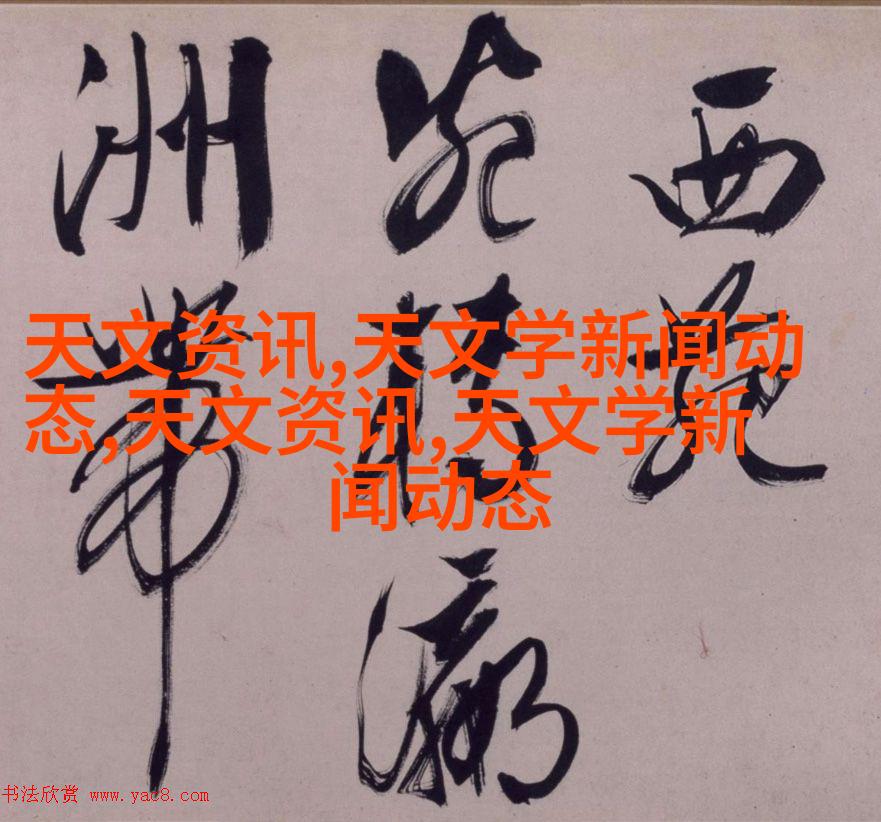 西苑
瀛
洲帶
天文资讯,天文学新闻动
态,天文资讯,天文学新
闻动态
书法欣赏 www.yac8.com